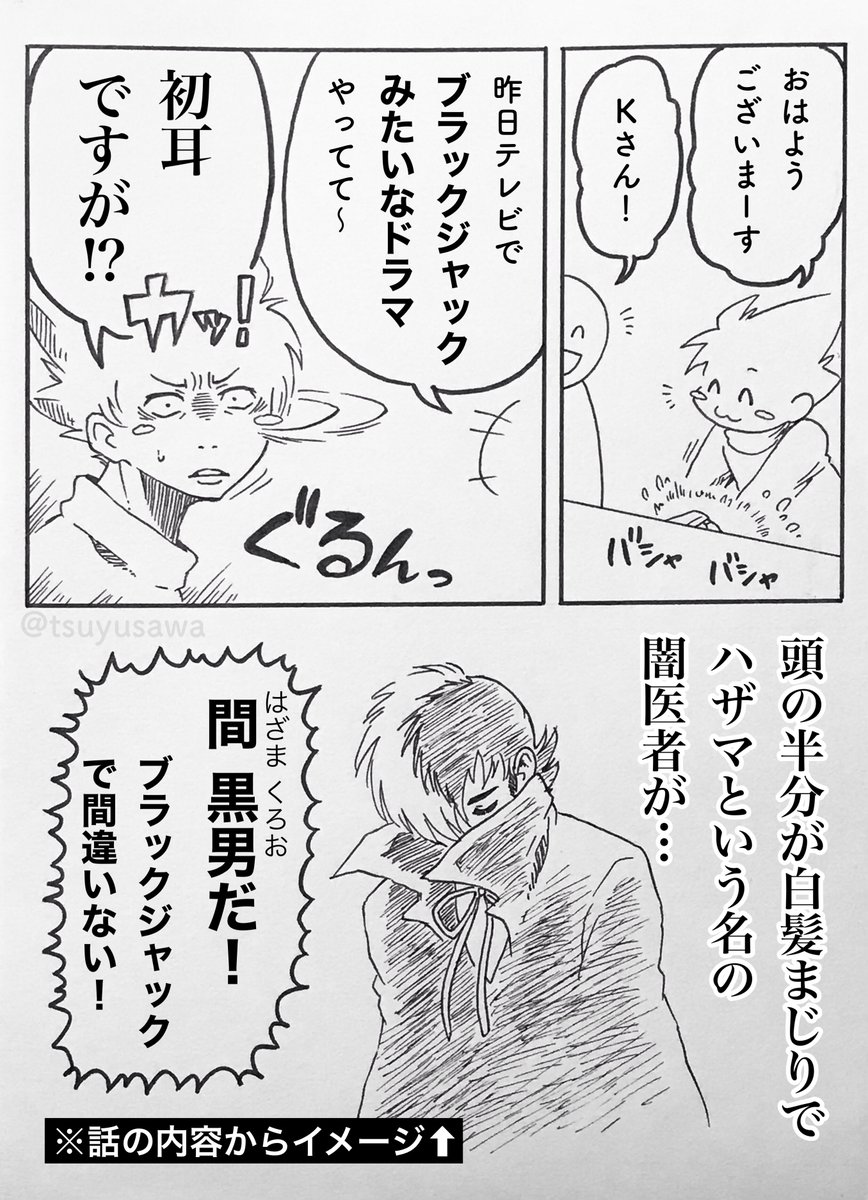 おはよう
ございまーす
Kさん!
バシャ
バシャ
昨日テレビで
ブラックジャック
みたいなドラマ
やってて〜
ぐるんっ
カッ!
初耳
ですが!?
@tsuyusawa
頭の半分が白髪まじりで
ハザマという名の
闇医者が…
はざま くろお
間 黒男だ!
ブラックジャック
で間違いない!
※話の内容からイメージ⬆